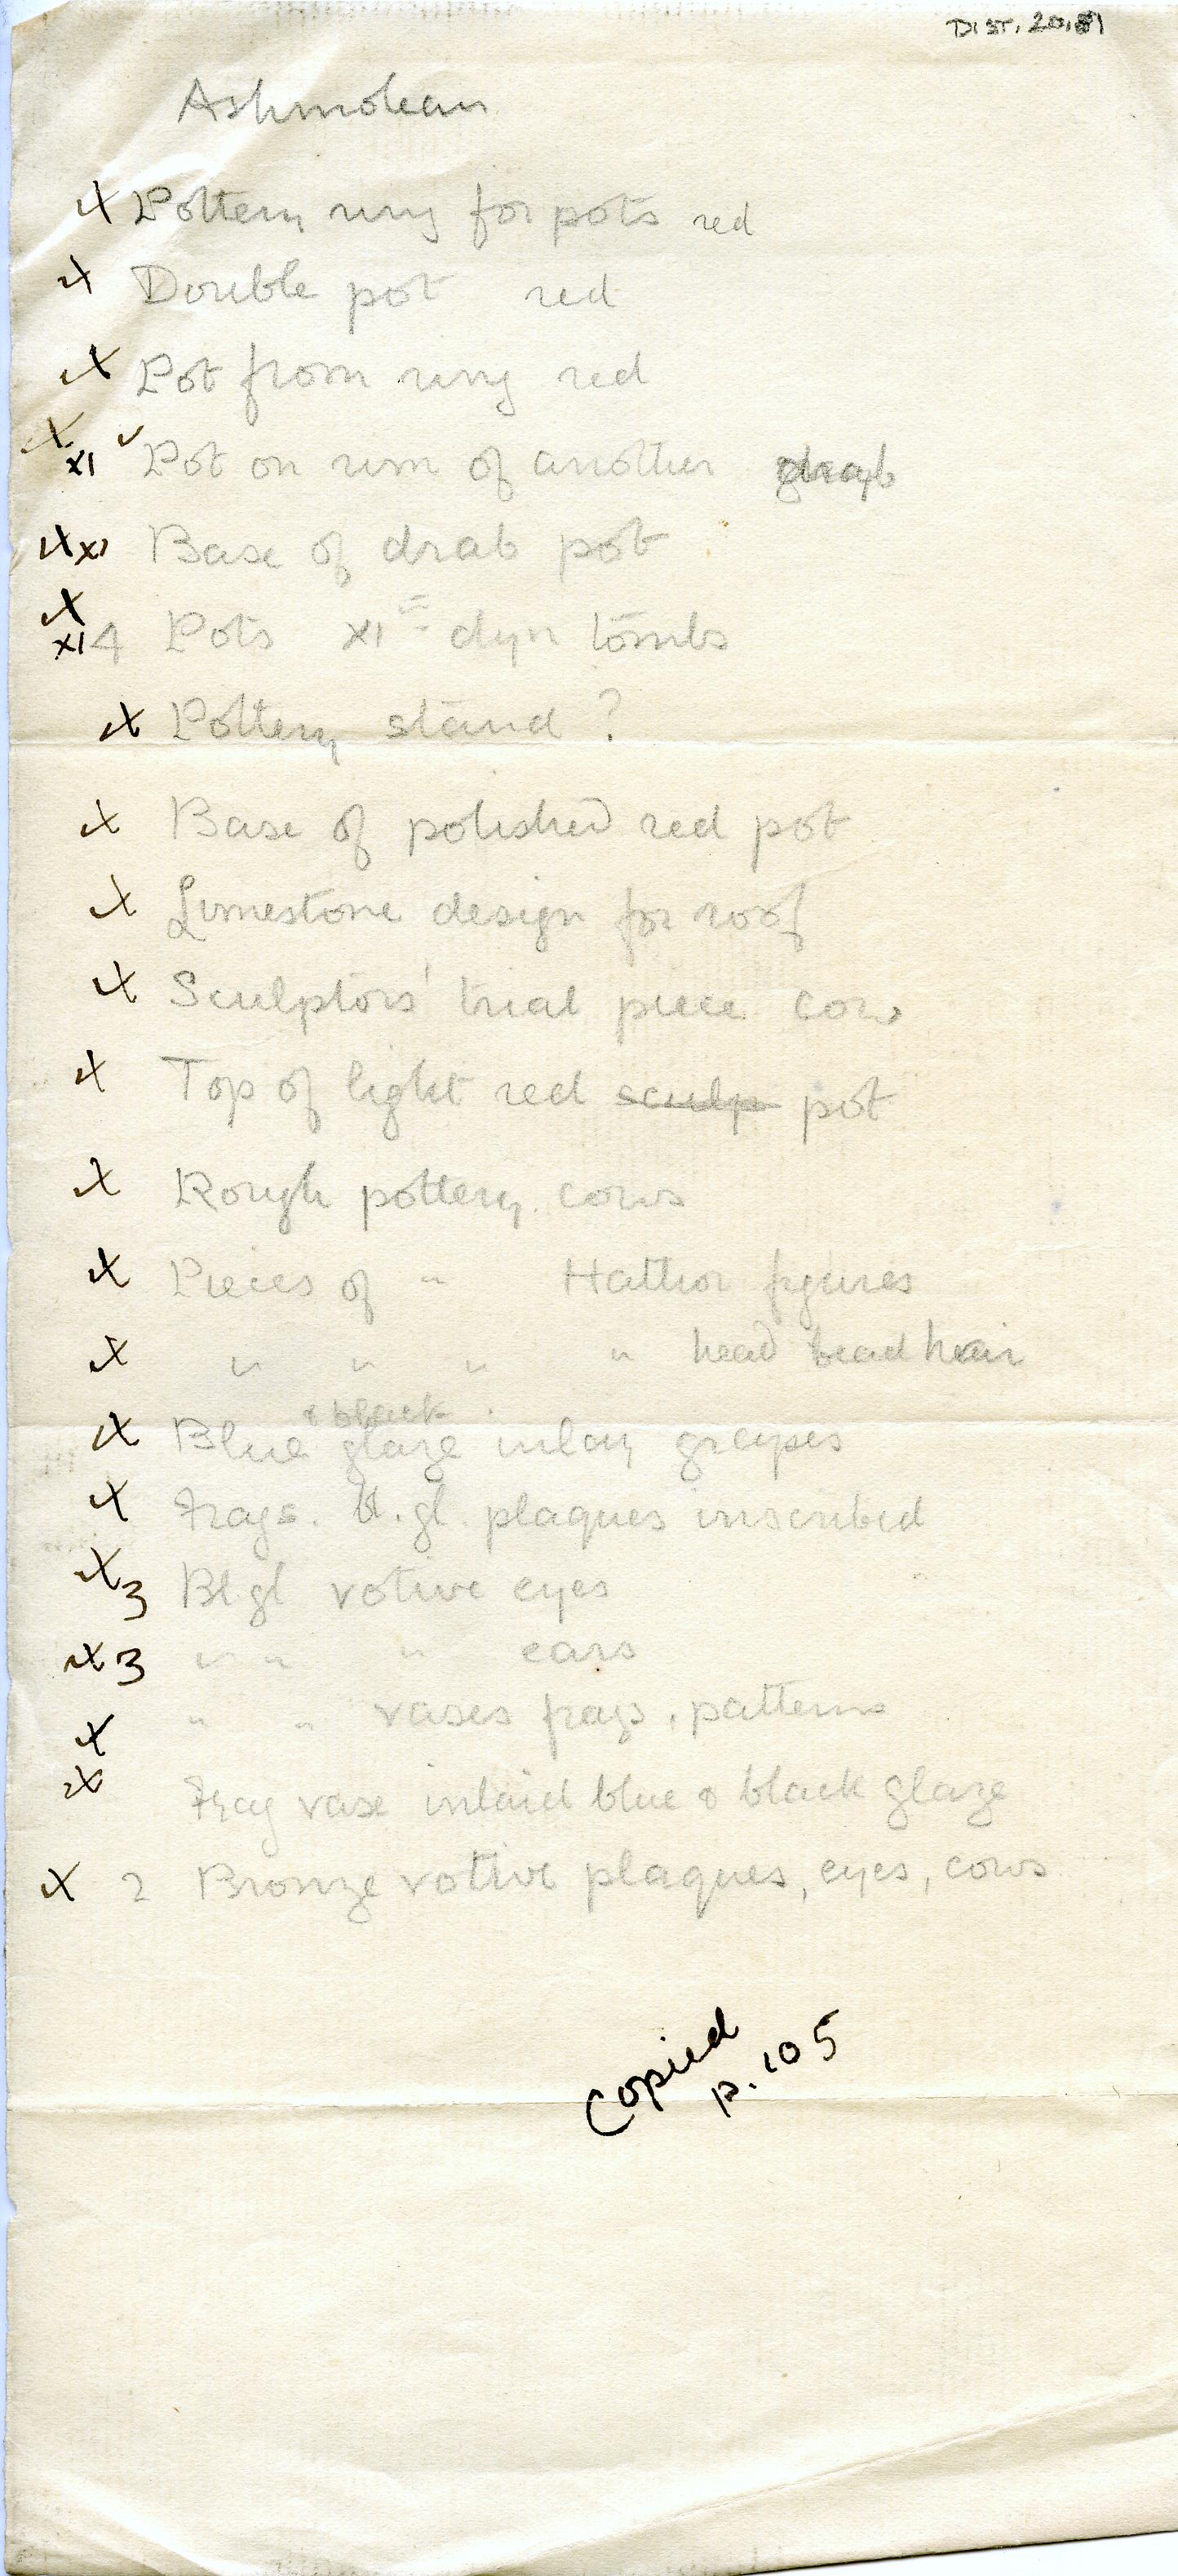 DIST. 20.81
Ashmolean
X Pottery ring for pots red
X Double pot red
X Pot from ring red
X XI ✓ Pot on rim of another drab
X XI Base of drab pot
X XI 4 Pots XIth dyn tombs
X Pottery stand ?
X Base of polished red pot
X Limestone design for roof
X Sculptors' trial piece cow
X Top of light red sculp pot
X Rough pottery cows
X Pieces of " Hathor figures
X " " " " head bead hair
& black
X Blue glaze inlay grapes
X Frags. bl. gl. plaques inscribed
X 3 Bl gl votive eyes
X 3 " " " ears
X " " vases frags, patterns
X Frag vase inlaid blue & black glaze
X 2 Bronze votive plaques, eyes, cows
Copied
p. 105